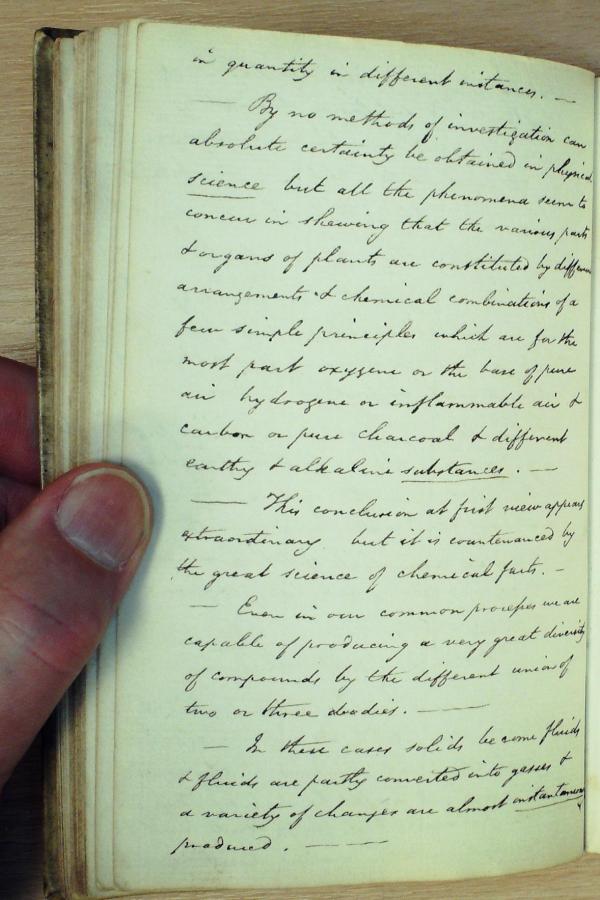 in quantity in different instances. —
— By no methods of investigation can
absolute certainty be obtained in physical
science but all the phenomena seem to
concur in shewing that the various parts
& organs of plants are constituted by different
arrangements & chemical combinations of a
few simple principles which are for the
most part oxygene or the base of pure
air hydrogene or inflammable air &
carbon or pure charcoal & different
earthy & alkaline substances. —
— This conclusion at first view appears
extraordinary but it is countenanced by
the great science of chemical facts. —
— Even in our common processes we are
capable of producing a very great diversity
of compounds by the different union of
two or three bodies. —
— In these cases solids become fluids
& fluids are partly converted into gasses &
a variety of changes are almost instantaneously
produced. —